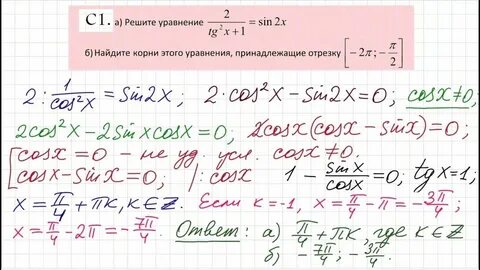 C1. а) Решите уравнение 2/(tg²x+1) = sin 2x
б) Найдите корни этого уравнения, принадлежащие отрезку [-2π; -π/2]
2 : 1/cos²x = Sin2x; 2·cos²x - Sin2x = 0; cosx ≠ 0;
2cos²x - 2Sinxcosx = 0; 2cosx(cosx - Sinx) = 0;
[cosx = 0 - не уд. усл. cosx ≠ 0.
cosx - Sinx = 0; |:cosx 1 - Sinx/cosx = 0; tgx = 1;
x = π/4 + πk, k ∈ Z. Если k = -1, x = π/4 - π = -3π/4;
x = π/4 - 2π = -7π/4. Ответ: а) π/4 + πk, где k ∈ Z
б) -7π/4; -3π/4.